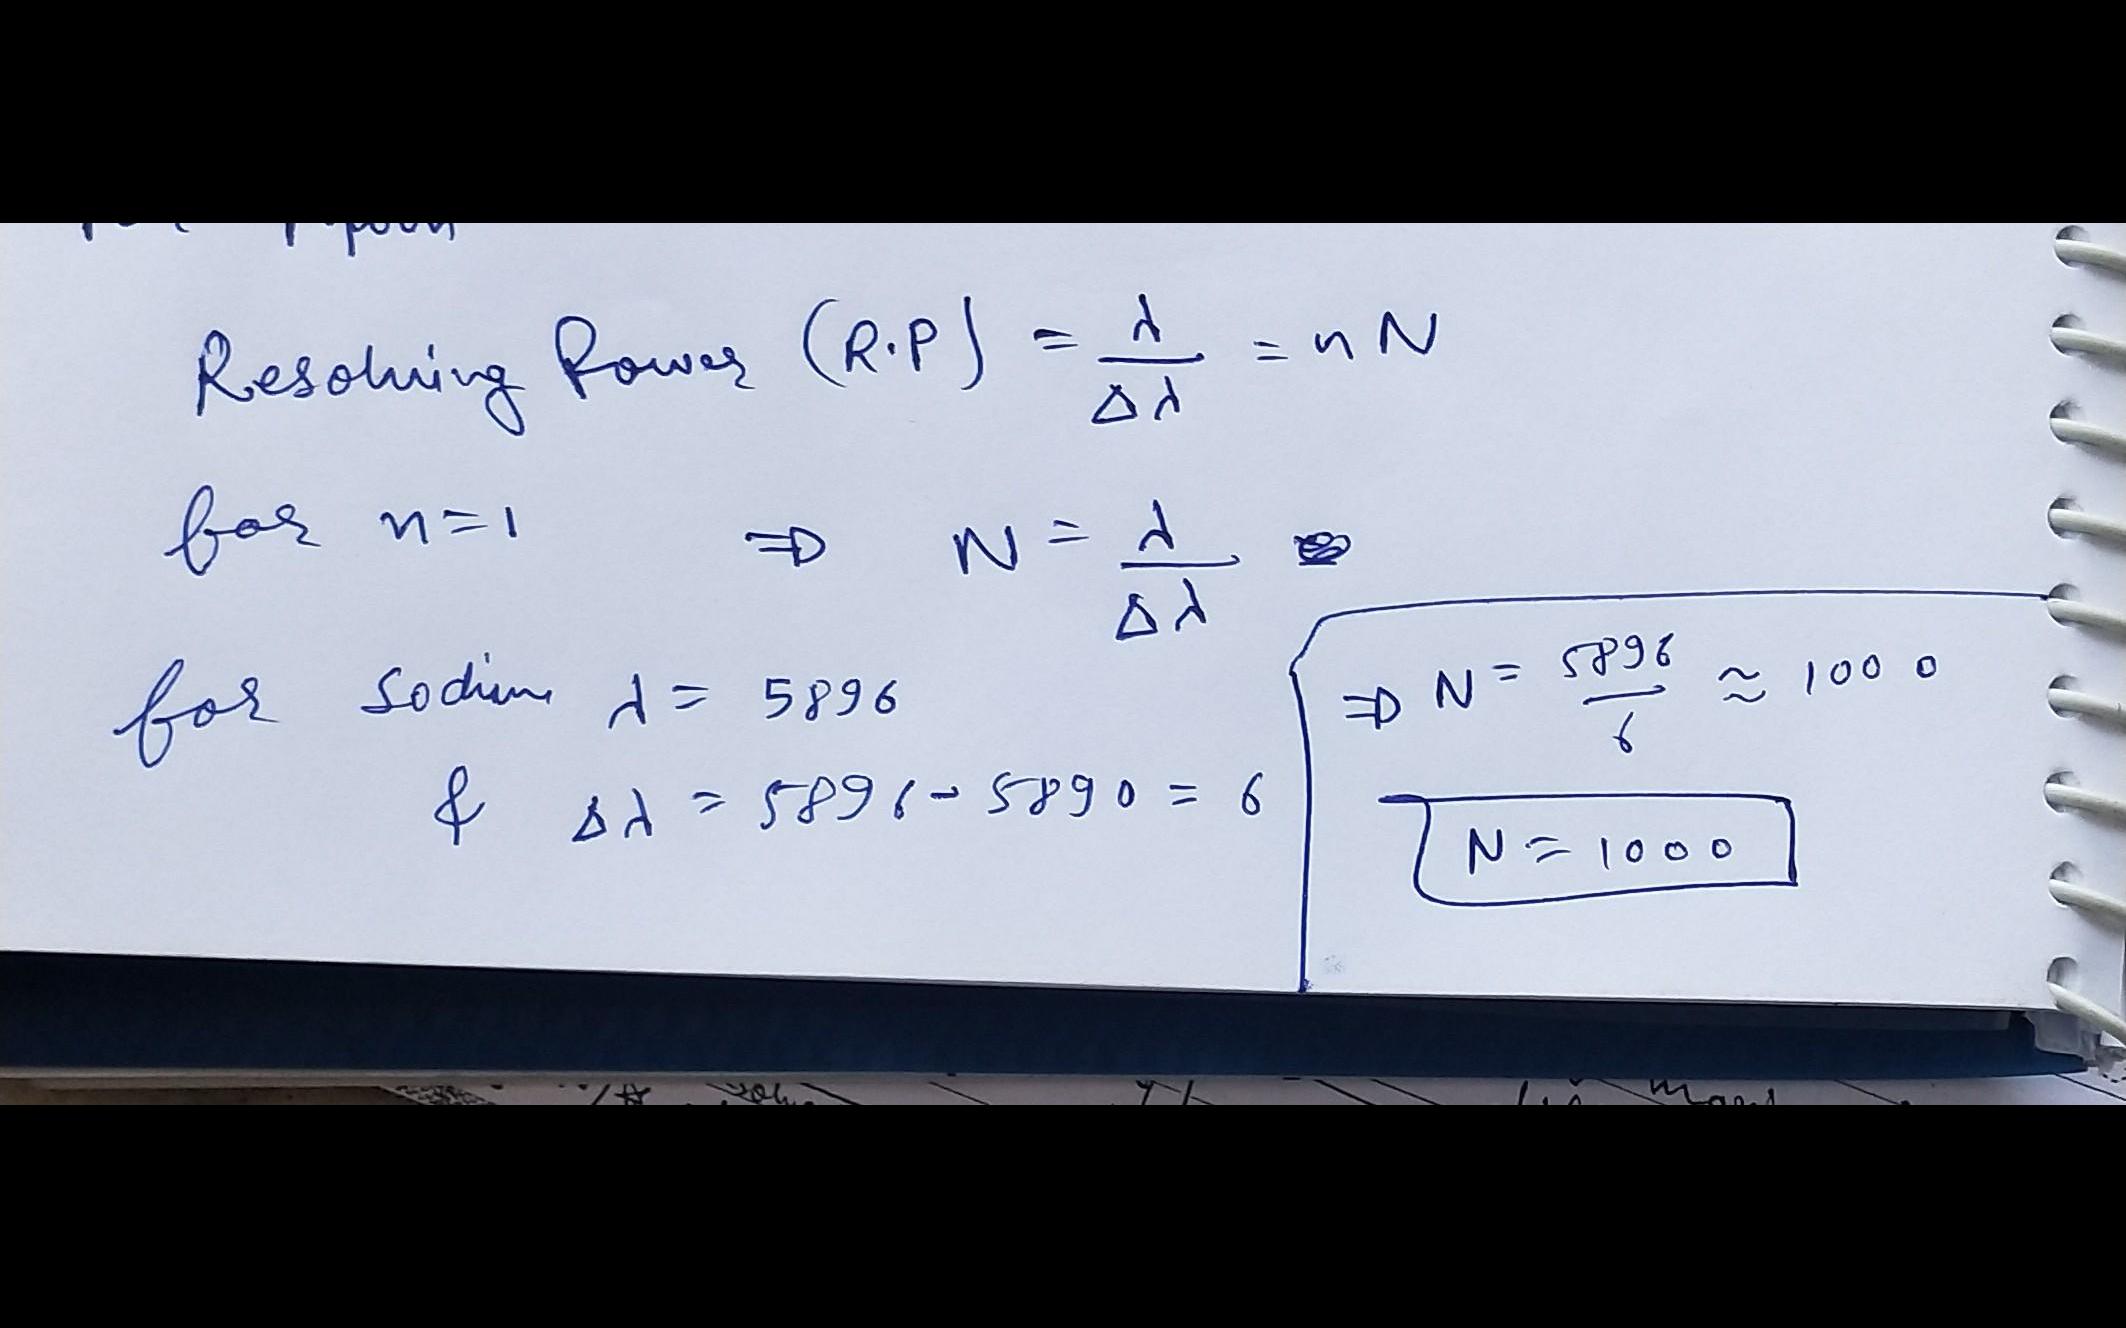 Resolving Power (R.P) = λ/Δλ = nN
for n=1 ⇒ N = λ/Δλ
for sodium λ = 5896
& Δλ = 5896 - 5890 = 6
⇒ N = 5896/6 ≈ 1000
N = 1000